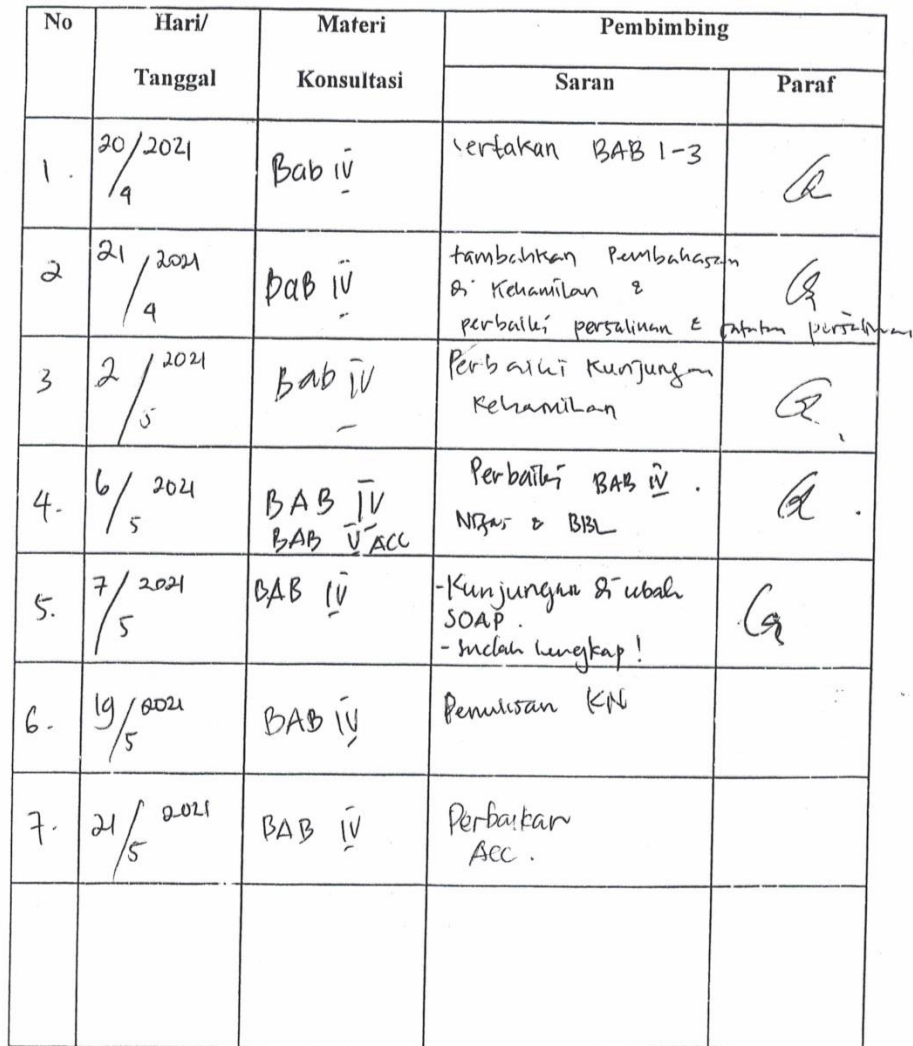 No Hari/ Tanggal Materi Konsultasi Pembimbing
Saran Paraf
1. 20/4 2021 Bab IV sertakan BAB 1-3
2 21/4 2021 BaB IV tambahkan Pembahasan
di Kehamilan &
perbaiki persalinan & catatan persalinan
3 2/5 2021 Bab IV Perbaiki Kunjungan
Kehamilan
4. 6/5 2021 BAB IV Perbaiki BAB IV.
BAB V ACC Nifas & BBL
5. 7/5 2021 BAB IV -Kunjungan di ubah
SOAP.
- Sudah lengkap!
6. 19/5 2021 BAB IV Penulisan KN
7. 21/5 2021 BAB IV Perbaikan
Acc.